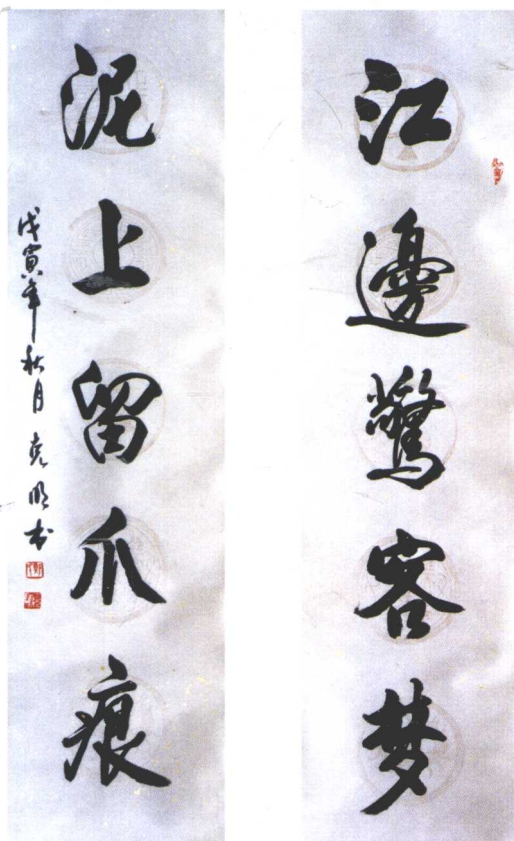 江邊驚客梦
泥上留爪痕
戊寅年秋月克明书